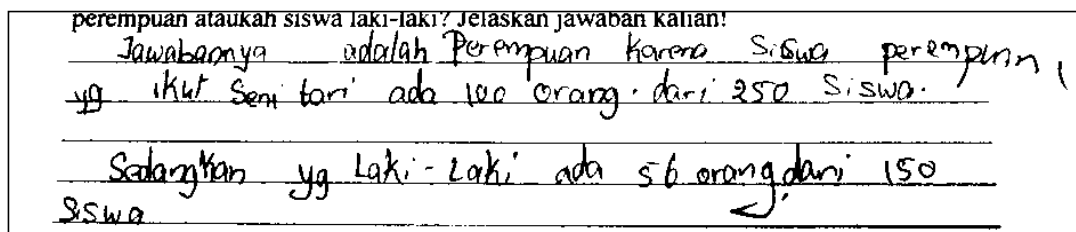 perempuan ataukah siswa laki-laki? Jelaskan jawaban kalian!
Jawabannya adalah Perempuan karena siswa perempuan
yg ikut seni tari ada 100 orang. dari 250 siswa.
Sedangkan yg Laki-Laki ada 56 orang dari 150
siswa